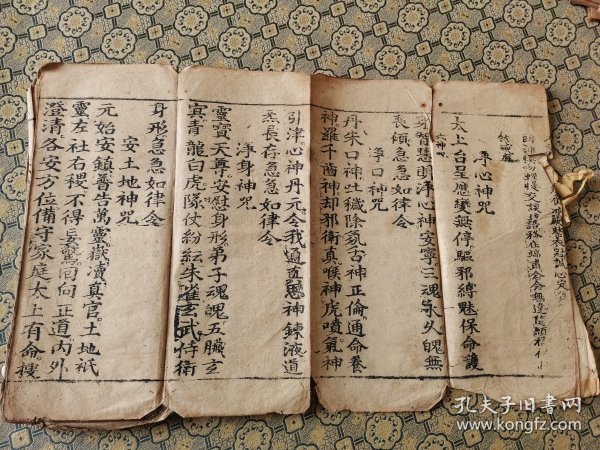 淨心神咒
太上台星應變無停驅邪縛魅保命護
身智慧明淨心神安寧三魂永久魄無
喪傾急急如律令
淨口神咒
丹朱口神吐穢除氛舌神正倫通命養
神羅千齒神却邪衛真喉神虎噴氣神
引津心神丹元令我通真思神鍊液道
炁長存急急如律令
淨身神咒
靈寶天尊安慰身形弟子魂魄五臟玄
冥青龍白虎隊仗紛紜朱雀玄武侍衛
身形急急如律令
安土地神咒
元始安鎮普告萬靈嶽瀆真官土地祇
靈左社右稷不得妄驚回向正道內外
澄清各安方位備守家庭太上有命搜
孔夫子旧书网
www.kongfz.com